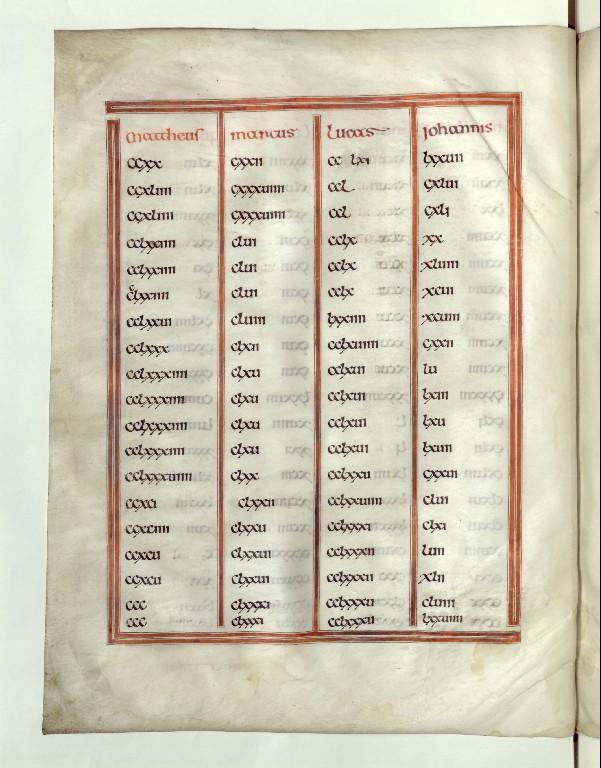 Mattheus marcus Lucas Johannis
ccxx cxxii cc lxi lxxuii
ccxliiii cxxxuiiii ccl cxlui
ccxliiii cxxxuiiii ccl cxli
cclxxiiii clui cclx xx
cclxxiiii clui cclx xluiii
cclxxiiii clui cclx xcui
cclxxui cluiii lxxiiii xcuiii
cclxxx clxii cclxuiiii cxxii
cclxxxiiii clxu cclxui lu
cclxxxiiii clxu cclxui lxiii
cclxxxiiii clxu cclxui lxu
cclxxxiiii clxu cclxui lxuii
cclxxxuiiii clxx cclxxu cxxui
ccxci clxxii cclxxuiiii clui
ccxciiii clxxu cclxxxi clxi
ccxcu clxxui cclxxxii lui
ccxcu clxxui cclxxxii xlii
ccc clxxxi cclxxxu cluiii
ccc clxxxi cclxxxu lxxuiiii